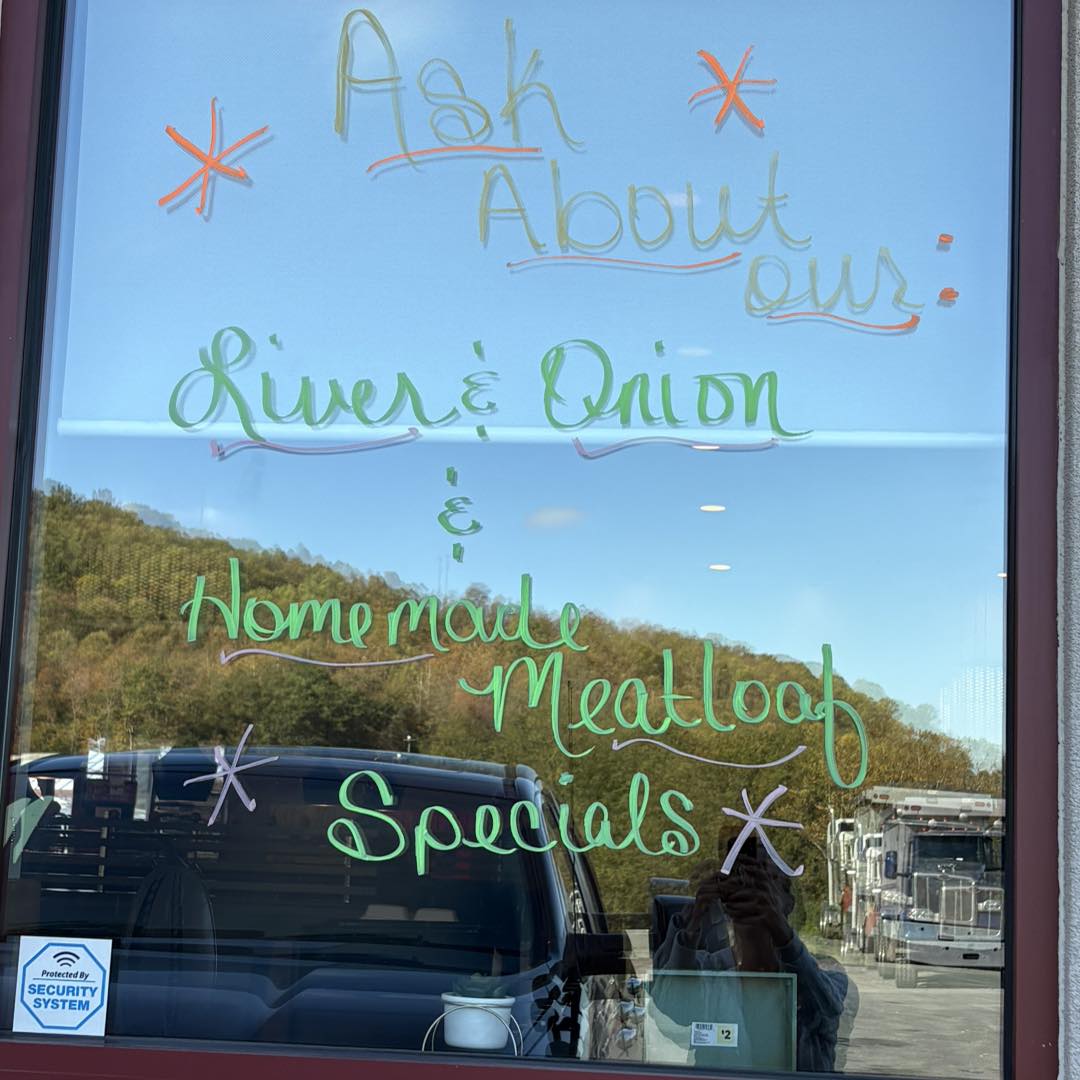 Ask
About
our:
Liver & Onion
&
Homemade
Meatloaf
Specials
Protected By
SECURITY
SYSTEM
$2